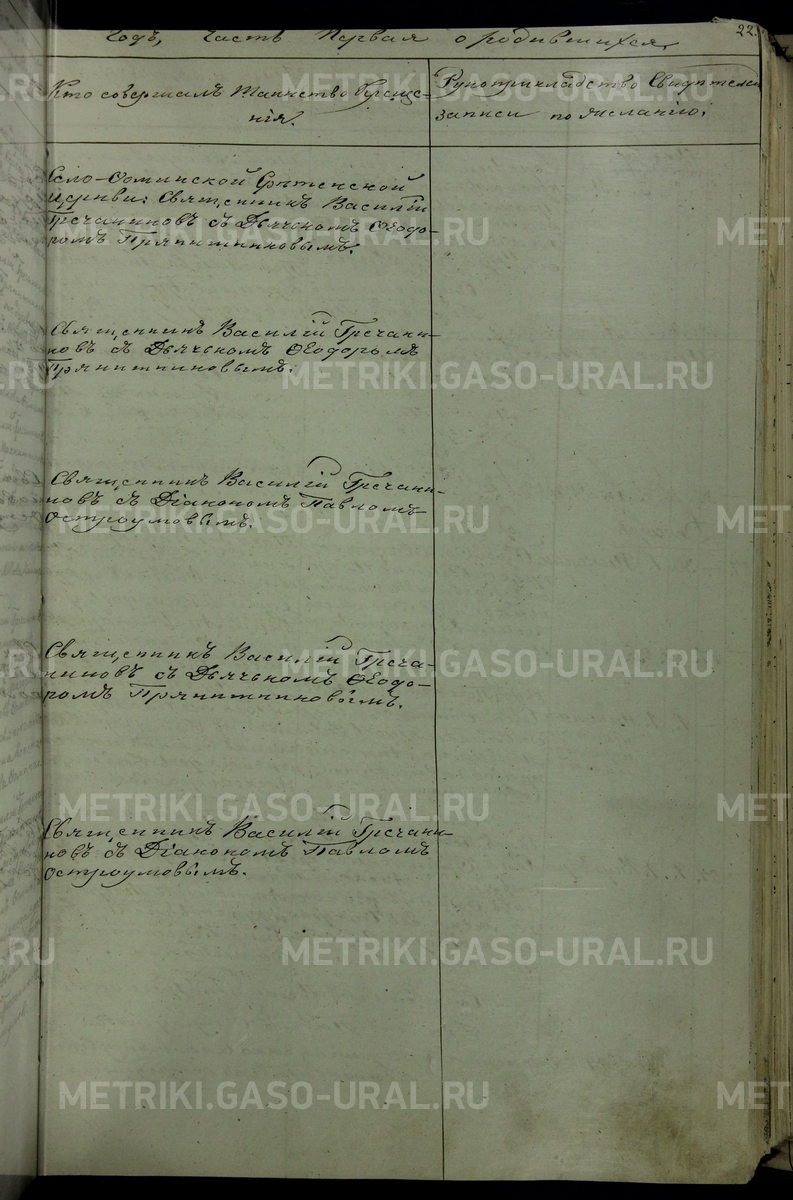 22.
Годъ, Часть Первая о родившихся
Кто совершалъ Таинство Креще-
нія.
Рукоприкладство Свидѣтелей
записи по желанію.
Село-Ооминской Срѣтенской
Церкви: Священникъ Василій
Гречаниновъ съ Дьячкомъ Ѳеодо-
ромъ Пряничниковымъ.
Священникъ Василій Гречани-
новъ съ Дьячкомъ Ѳеодоромъ
Пряничниковымъ.
Священникъ Василій Гречани-
новъ съ Діакономъ Павломъ
Остроумовымъ.
Священникъ Василій Греча-
ниновъ съ Дьячкомъ Ѳеодо-
ромъ Пряничниковымъ.
Священникъ Василій Гречани-
новъ съ Діакономъ Павломъ
Остроумовымъ.
METRIKI.GASO-URAL.RU